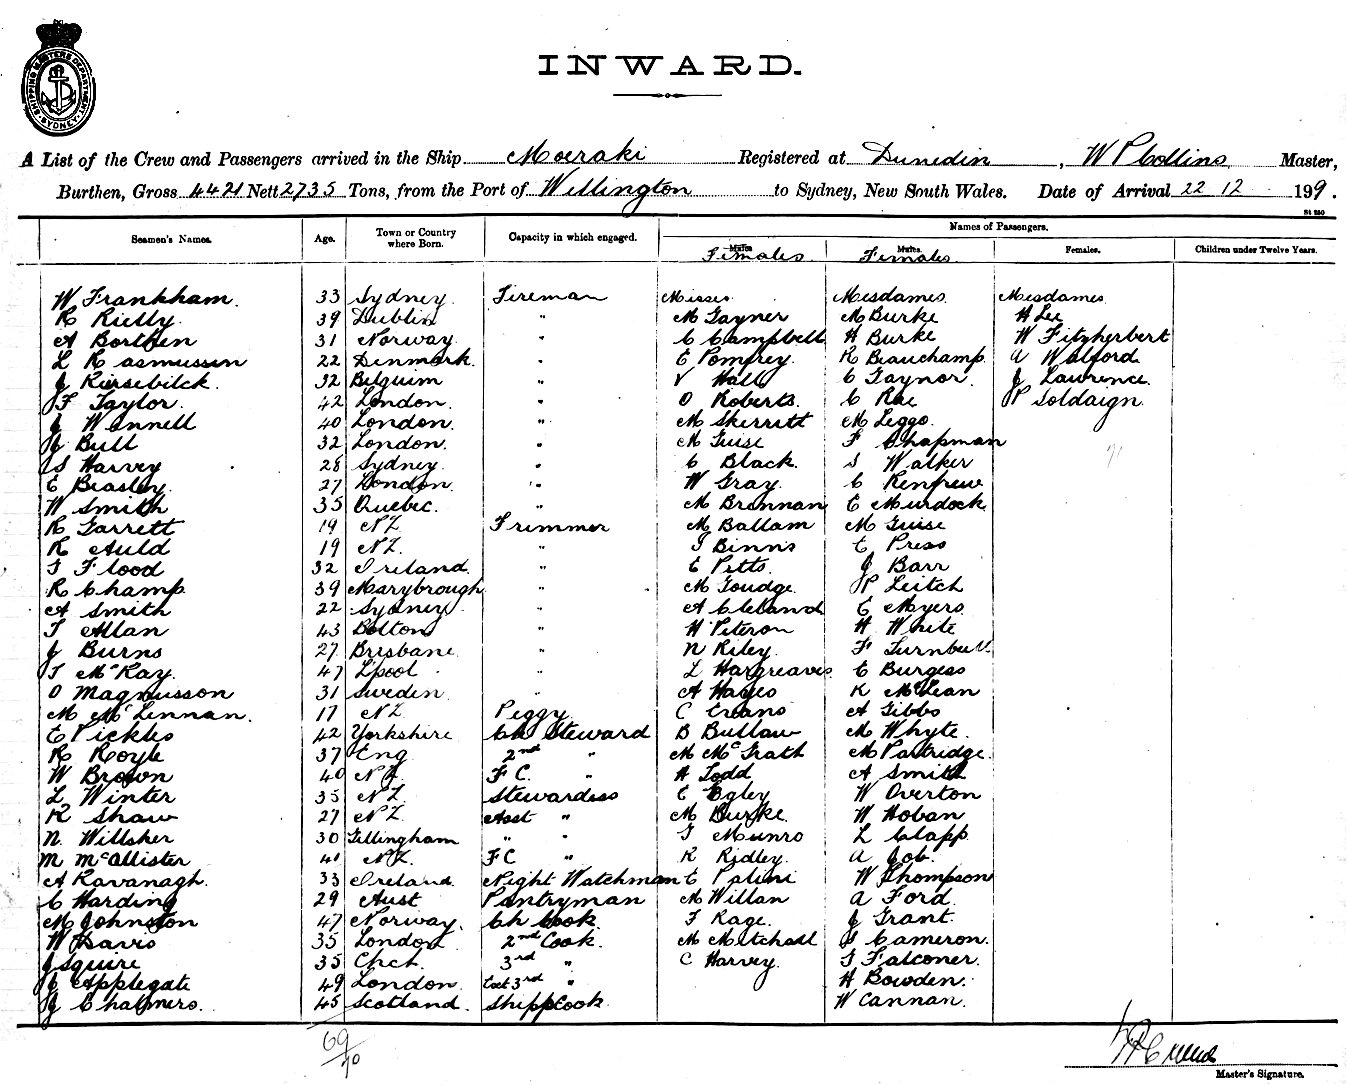 SHIPPING MASTERS DEPARTMENT SYDNEY
INWARD.
A List of the Crew and Passengers arrived in the Ship Moeraki Registered at Dunedin, W P Collins Master,
Burthen, Gross 4421 Nett 2735 Tons, from the Port of Wellington to Sydney, New South Wales. Date of Arrival 22 12 199.
St 250
Seamen's Names. Age. Town or Country where Born. Capacity in which engaged. Names of Passengers.
Males Females Males Females Females. Children under Twelve Years.
W Frankham. 33 Sydney Fireman Misses Mesdames Mesdames
R Rielly. 39 Dublin " M Gayner M Burke H Lee
A Borthen 31 Norway " C Campbell H Burke W Fitzherbert
L Rasmussen 22 Denmark. " E Pomfrey. R Beauchamp. A Walford
J Riersebilck. 32 Belguim " V Hall C Gaynor. J Lawrence.
F Taylor. 42 London. " O Roberts. C Rae P Soldaign.
J Wennell 40 London. " M Skerritt M Leggo.
J Bull 32 London. " M Guise F Chapman
S Harvey 28 Sydney. " C Black. S Walker
E Beasley. 27 London. " W Gray. C Renfrew
W Smith 35 Quebec. " M Brennan E Murdock
R Garrett 19 NZ Trimmer M Ballam M Guise
R Auld 19 NZ. " J Binns E Press
T Flood 32 Ireland. " E Pitts. J Barr
R Champ 39 Marybrough " M Goudge. P Leitch
A Smith 22 Sydney. " A Cleland E Myers.
T Allan 43 Bolton " H Peteron H White
J Burns 27 Brisbane. " N Riley. F Turnbull
T McKay. 47 L'pool " L Hargreaves E Burgess
O Magnusson 31 Sweden. " A Hayes K McLean
M McLennan. 17 NZ Peggy C Evans A Gibbs
E Pickles 42 Yorkshire Ch Steward B Bullaw M Whyte.
R Royle 37 Eng 2nd " M McGrath M Partridge.
W Brown 40 NZ. FC. " A Todd A Smith
L Winter 35 NZ Stewardess E Egley W Overton
R Shaw 27 NZ. Asst " M Burke W Hoban
N. Willsher 30 Gillingham " " J Munro L Clapp.
M McAllister 41 NZ. FC " R Ridley. A Job.
A Kavanagh. 33 Ireland. Night Watchman E Palini W Thompson
C Harding 29 Aust Pantryman M Willan A Ford.
M Johnston 47 Norway. Ch Cook. F Rage. J Grant.
W Davis 35 London 2nd Cook. M Mitchell J Cameron.
J Squire 35 Chch. 3rd " C Harvey. J Falconer.
C Applegate 49 London. 3rd " H Bowden.
J Chalmers. 45 Scotland. Shipp Cook. W Cannan.
69
10
Master's Signature.